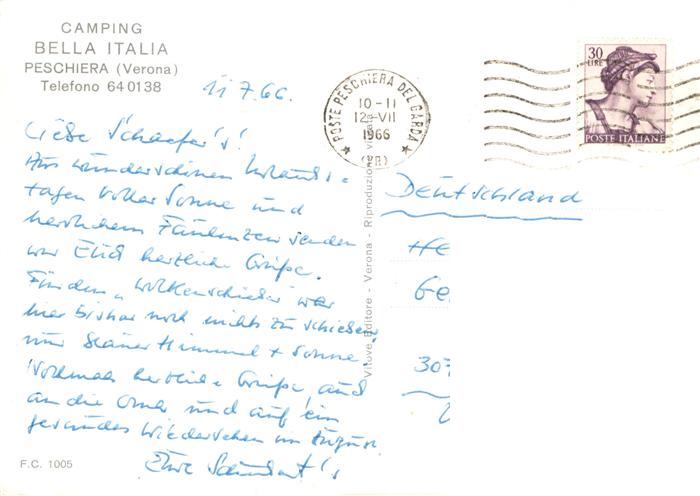 CAMPING
BELLA ITALIA
PESCHIERA (Verona)
Telefono 640138
11.7.66.
30
LIRE
POSTE ITALIANE
POSTE PESCHIERA DEL GARDA
10-11
12-VII
1966
(VR)
Liebe Schaefer's!
Aus wunderschönen Urlaubs-
tagen voller Sonne und
herrlichem Faulenzen senden
wir Euch herzliche Grüße.
Für den "Wolkenschieber" war
hier bisher noch nichts zu schieben
nur blauer Himmel + Sonne!
Nochmals herzliche Grüße, auch
an die Oma und auf ein
gesundes Wiedersehen im August
Eure
Deutschland
He
Ge
307
Vitove Editore - Verona - Riproduzione vietata
F.C. 1005